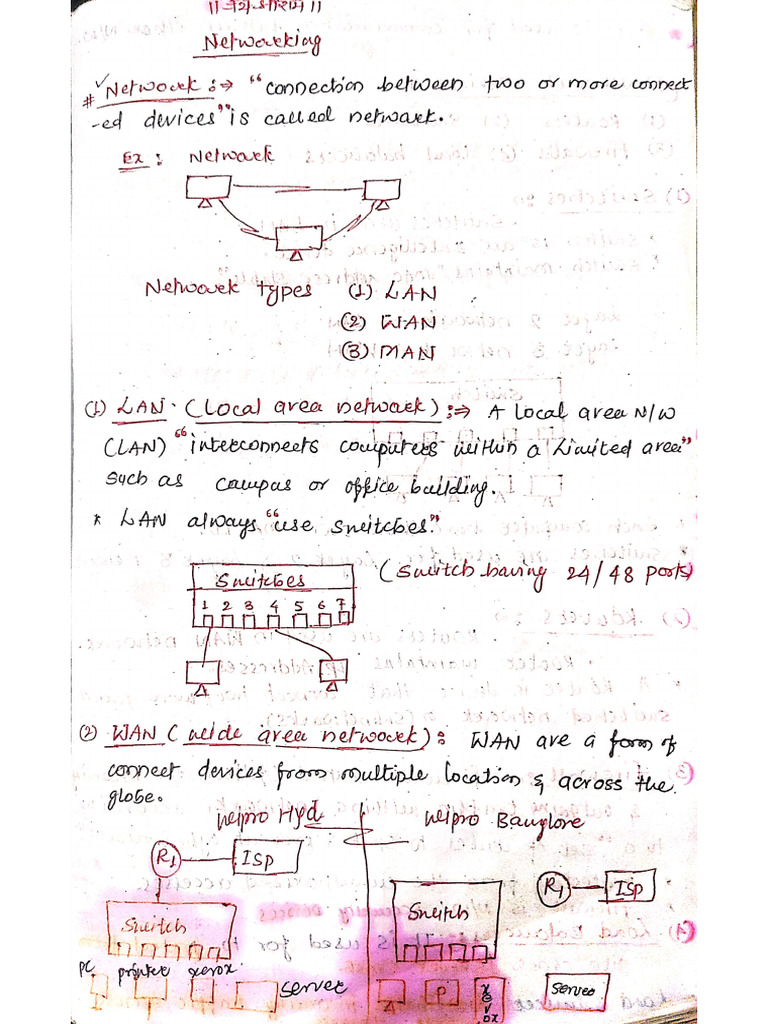 Networking
# ✓Network :⇒ "connection between two or more connect
-ed devices" is called network.
Ex : Network
Network types (1) LAN
(2) WAN
(3) MAN
(1) LAN. (Local area network) :⇒ A Local area N/W
(LAN) "interconnects computers within a Limited area"
such as campas or office building.
* LAN always "use switches"
Switches
(Switch having 24/48 ports)
1 2 3 4 5 6 7
(2) WAN (wide area network) : WAN are a form of
connect devices from multiple location & across the
globe.
wipro Hyd
wipro Banglore
R1
ISP
R1
ISP
Switch
Switch
PC printer xerox server
P
XEROX
server